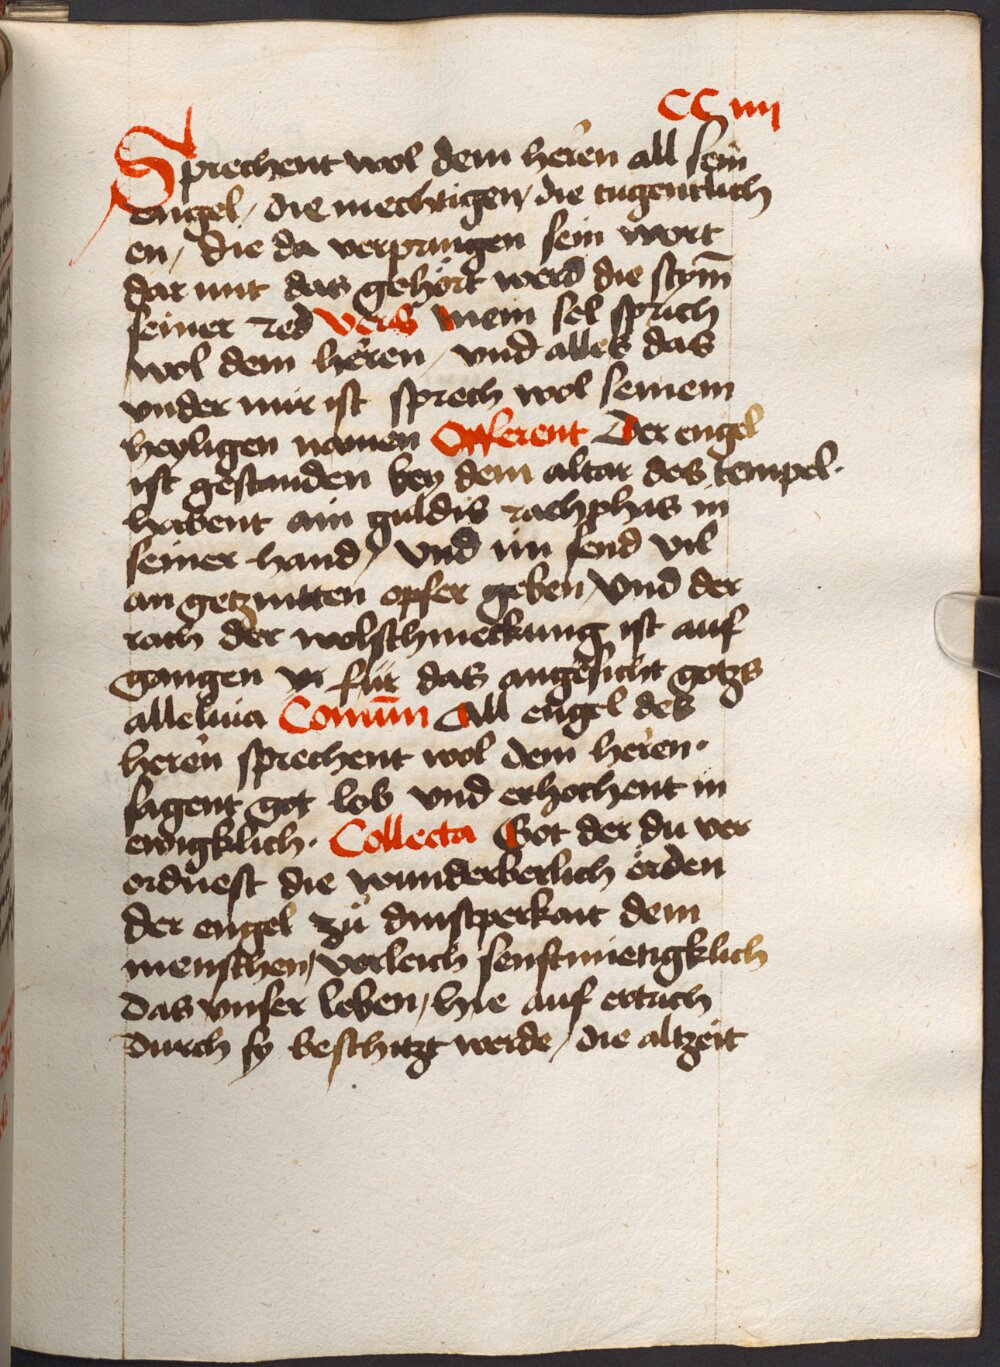 CC iiij
Sprechent wol dem herēn all sein
engel / die mechtigen / die tugentlich
en / die da verpringen sein wort
dar mit das gehört werd die stym̄
seiner red Vers Mein sel sprich
wol dem herēn / vnd alles das
vnder mir ist sprech wol seinem
heyligen namen Offerent Der engel
ist gestanden bey dem altar des tempel·
habent ain guldis rachphas in
seiner hand / vnd im send vil
an getzintten opfer geben / vnd der
rach der wolschmeckung ist auf
gangen vi für das angesicht gotzs
alleluia Comūn All engel des
herēn sprechent wol dem herēn·
sagent got lob vnd erhochent in
ewigklich· Collecta Got der du ver
ordnest die wunderberlich örden
der engel zů dinstperkait dem
menschen / verleich senftmietigklich
das vnser leben / hie auf ertrich
durch sy beschitzt werde / die altzeit